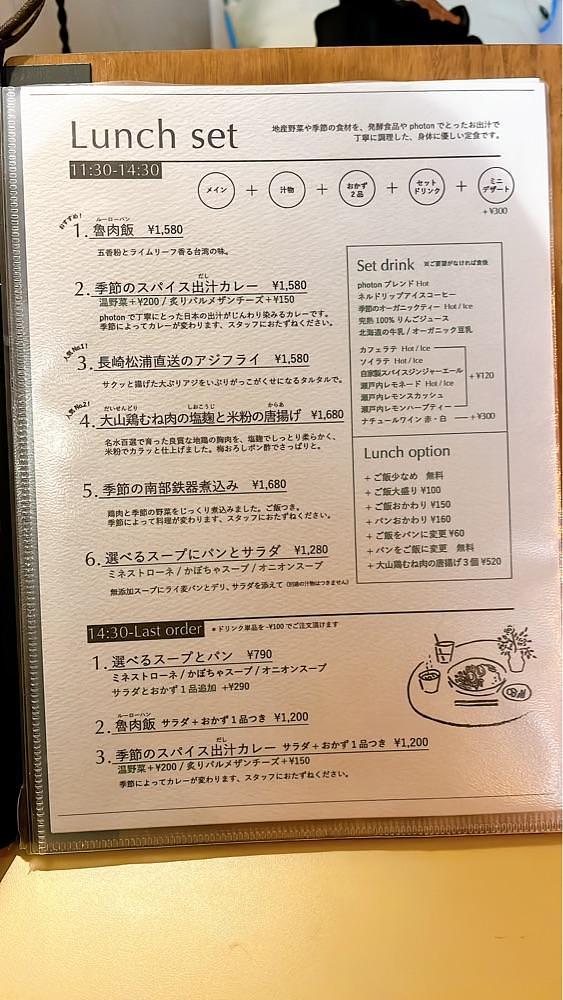 Lunch set
地産野菜や季節の食材を、発酵食品や photon でとったお出汁で
丁寧に調理した、身体に優しい定食です。
11:30-14:30
メイン + 汁物 + おかず2品 + セットドリンク + ミニデザート
+¥300
おすすめ!
ルーローハン
1. 魯肉飯 ¥1,580
五香粉とライムリーフ香る台湾の味。
だし
2. 季節のスパイス出汁カレー ¥1,580
温野菜+¥200 / 炙りパルメザンチーズ+¥150
photon で丁寧にとった日本の出汁がじんわり染みるカレーです。
季節によってカレーが変わります、スタッフにおたずねください。
人気No.1!
3. 長崎松浦直送のアジフライ ¥1,580
サクッと揚げた大ぶりアジをいぶりがっこがくせになるタルタルで。
人気No.2!
だいせんどり しおこうじ からあ
4. 大山鶏むね肉の塩麹と米粉の唐揚げ ¥1,680
名水百選で育った良質な地鶏の胸肉を、塩麹でしっとり柔らかく、
米粉でカラッと仕上げました。梅おろしポン酢でさっぱりと。
5. 季節の南部鉄器煮込み ¥1,680
鶏肉と季節の野菜をじっくり煮込みました。ご飯つき。
季節によって料理が変わります、スタッフにおたずねください。
6. 選べるスープにパンとサラダ ¥1,280
ミネストローネ / かぼちゃスープ / オニオンスープ
無添加スープにライ麦パンとデリ、サラダを添えて(別途の汁物はつきません)
Set drink ※ご要望がなければ食後
photon ブレンド Hot
ネルドリップアイスコーヒー
季節のオーガニックティー Hot / Ice
完熟 100% りんごジュース
北海道の牛乳 / オーガニック豆乳
カフェラテ Hot / Ice
ソイラテ Hot / Ice
自家製スパイスジンジャーエール
瀬戸内レモネード Hot / Ice
瀬戸内レモンスカッシュ
瀬戸内レモンハーブティー
+¥120
ナチュールワイン 赤・白 +¥300
Lunch option
+ ご飯少なめ 無料
+ ご飯大盛り ¥100
+ ご飯おかわり ¥150
+ パンおかわり ¥160
+ ご飯をパンに変更 ¥60
+ パンをご飯に変更 無料
+ 大山鶏むね肉の唐揚げ3個 ¥520
14:30-Last order ＊ドリンク単品を -¥100 でご注文頂けます
1. 選べるスープとパン ¥790
ミネストローネ / かぼちゃスープ / オニオンスープ
サラダとおかず1品追加 +¥290
ルーローハン
2. 魯肉飯 サラダ+おかず1品つき ¥1,200
だし
3. 季節のスパイス出汁カレー サラダ+おかず1品つき ¥1,200
温野菜+¥200 / 炙りパルメザンチーズ+¥150
季節によってカレーが変わります、スタッフにおたずねください。